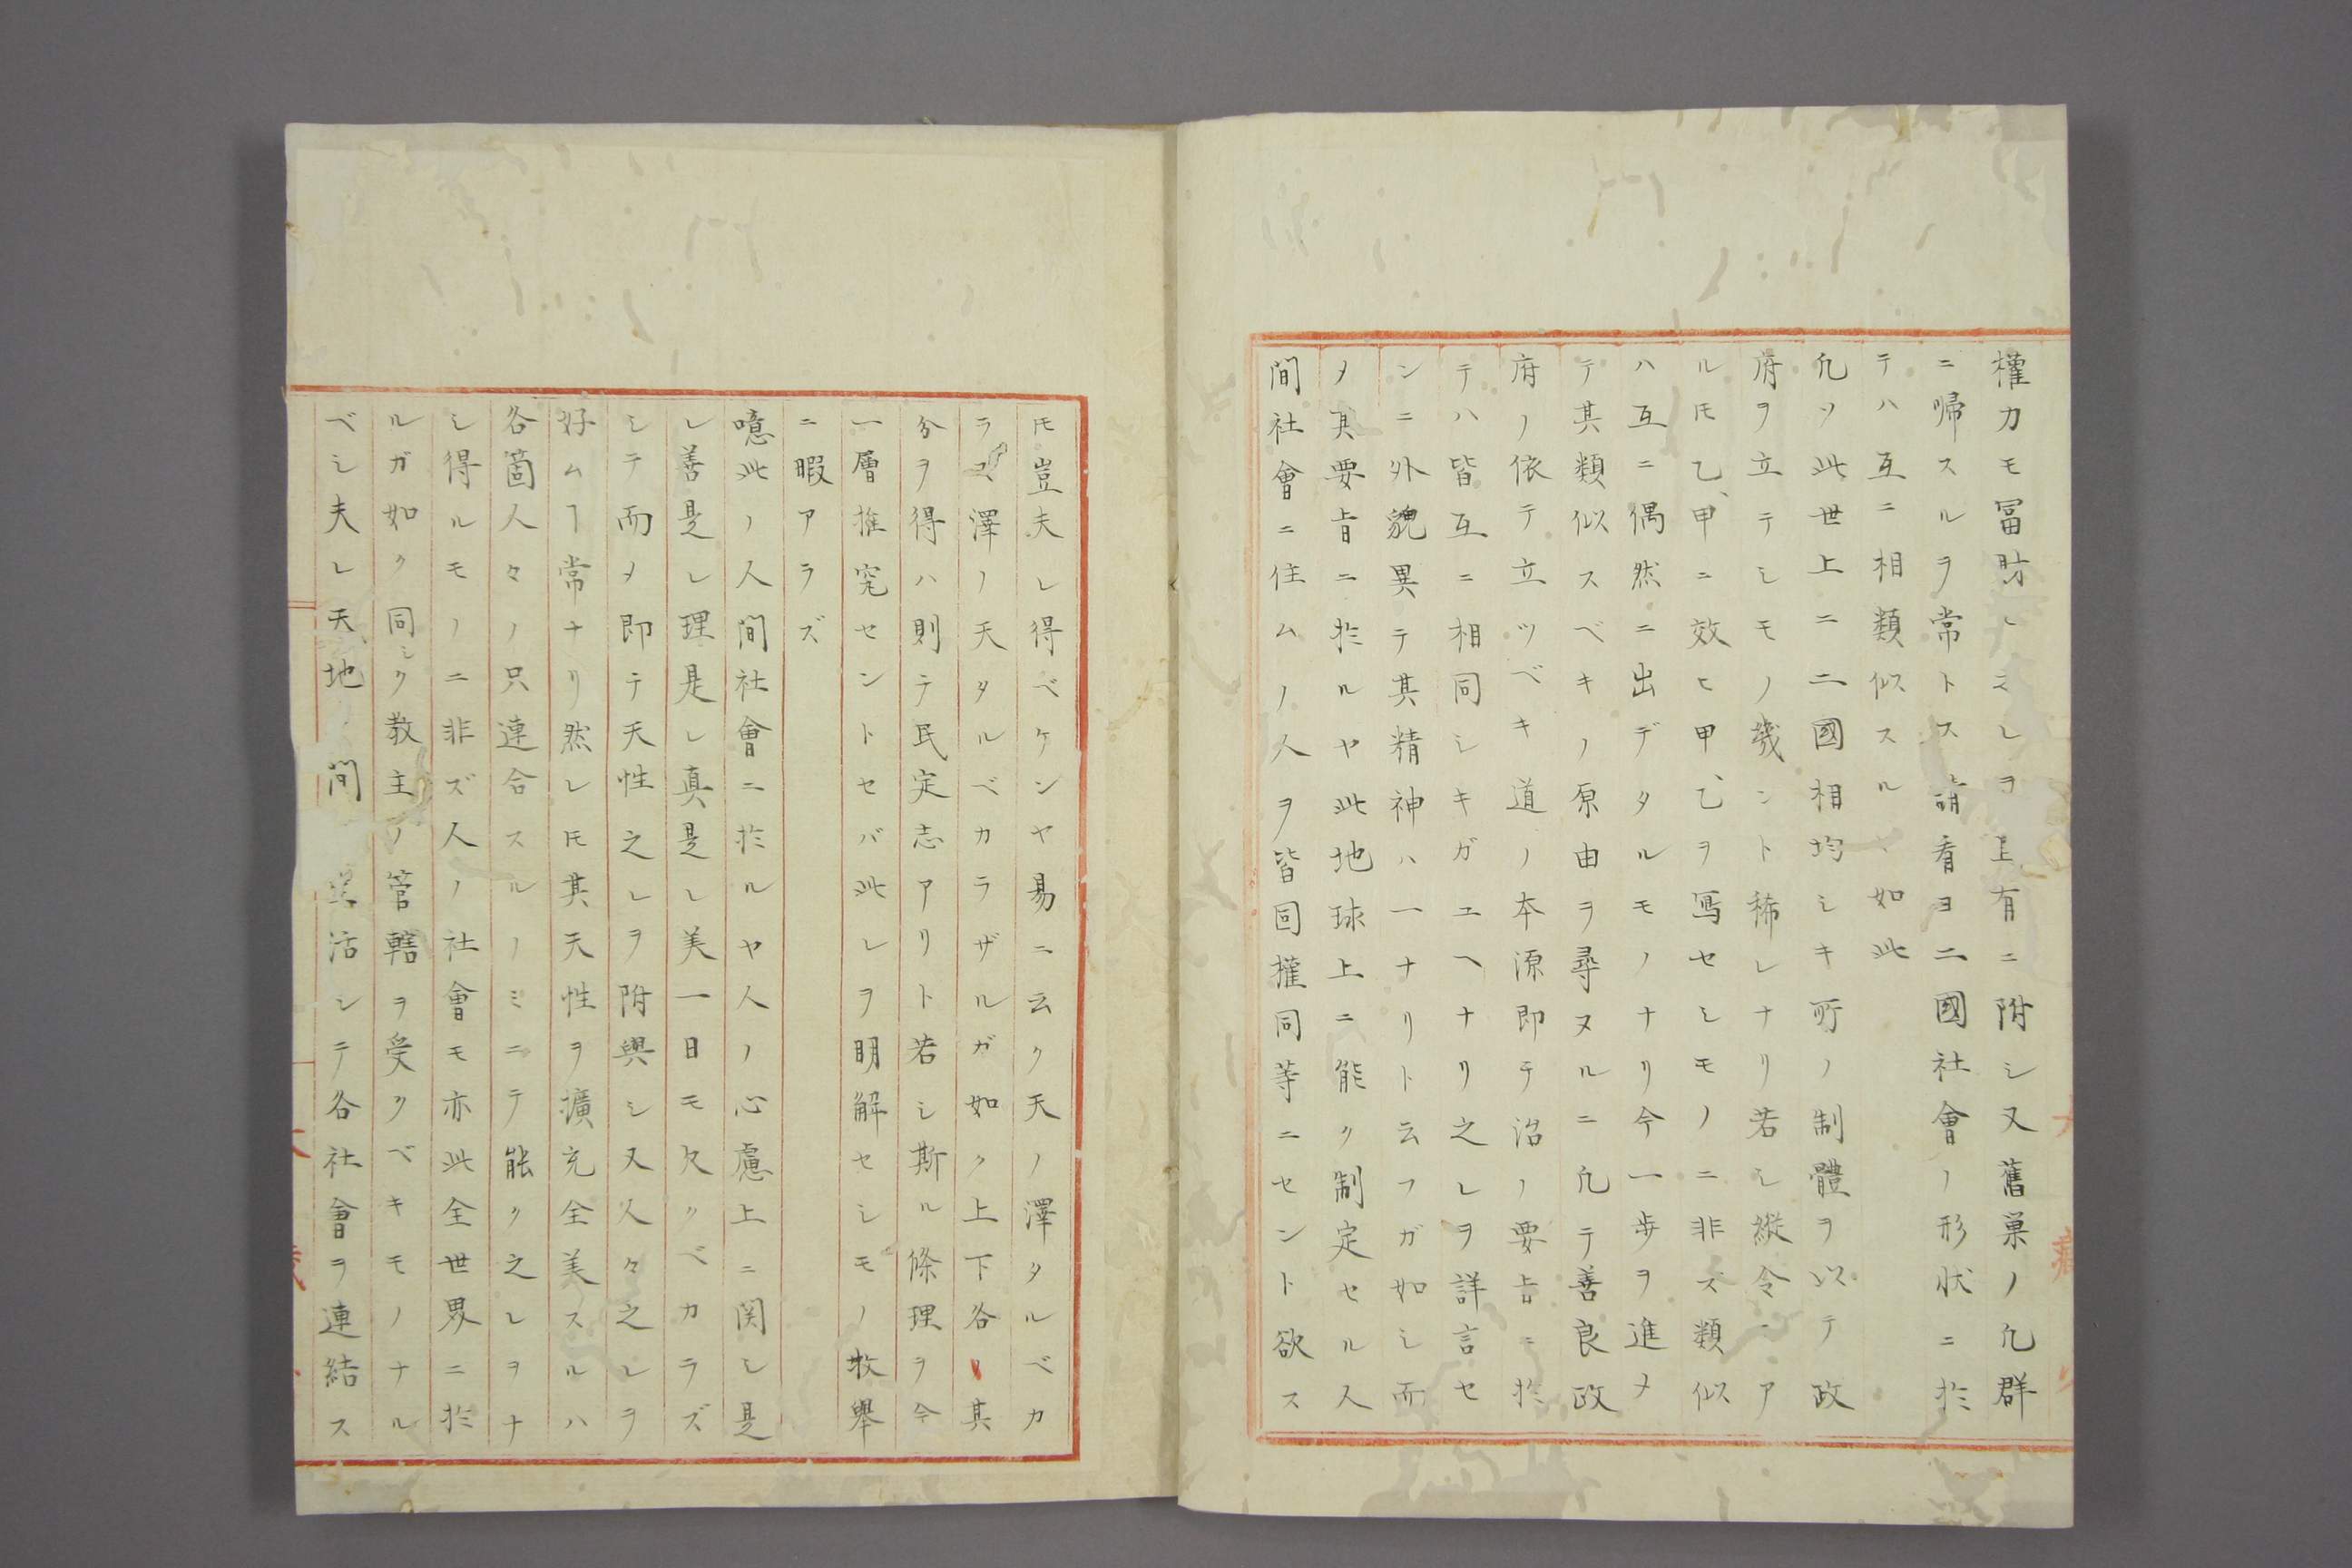 權力モ冨財レミレヲ上有ニ附シ又舊巣ノ凢群
ニ帰スルヲ常トス請看ヨ二國社會ノ形状ニ於
テハ互ニ相類似スル如此
凢ソ此世上ニ二國相均シキ所ノ制體ヲ以テ政
府ヲ立テシモノ幾ント稀レナリ若シ縦令ニア
ルモ乙、甲ニ效ヒ甲、乙ヲ冩セシモノニ非ズ類似
ハ互ニ偶然ニ出デタルモノナリ今一歩ヲ進メ
テ其類似スベキノ原由ヲ尋ヌルニ凢テ善良政
府ノ依テ立ツベキ道ノ本源即テ治ノ要旨ニ於
テハ皆互ニ相同シキガユヘナリ之レヲ詳言セ
ンニ外貌異テ其精神ハ一ナリト云フガ如シ而
メ其要旨ニ於ルヤ此地球上ニ能ク制定セル人
間社會ニ住ムノ人ヲ皆同權同等ニセント欲ス
𪜈豈夫レ得ベケンヤ昜ニ云ク天ノ澤タルベカ
ラズ澤ノ天タルベカラザルガ如ク上下各其
分ヲ得ハ則テ民定志アリト若シ斯ル條理ヲ今
一層推究セントセバ此レヲ明解セシモノ枚舉
ニ暇アラズ
噫此ノ人間社會ニ於ルヤ人ノ心慮上ニ関シ是
レ善是レ理是レ真是レ美一日モ欠クベカラズ
シテ而メ即テ天性之レヲ附與シ又人々之レヲ
好ムヿ常ナリ然レ𪜈其天性ヲ擴充全美スルハ
各箇人々ノ只連合スルノミニテ能ク之レヲナ
シ得ルモノニ非ズ人ノ社會モ亦此全世界ニ於
ルガ如ク同シク教主ノ管轄ヲ受クベキモノナル
ベシ夫レ天地間 活シテ各社會ヲ連結ス